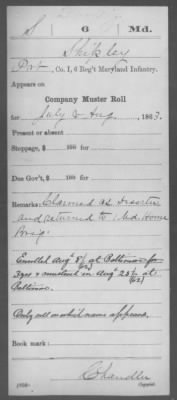 S 6 Md.
Shipley
Pvt, Co. I, 6 Reg't Maryland Infantry.
Appears on
Company Muster Roll
for July & Aug, 1863.
Present or absent
Stoppage, $ 100 for
Due Gov't, $ 100 for
Remarks: Claimed as Deserter
and returned to 1 Md. Home
Brig.
Enrolled Aug 8/62 at Baltimore for
3 yrs & mustered in Aug 23/62 at
Baltimore.
Only roll on which name appears.
Book mark:
Chandler
Copyist.